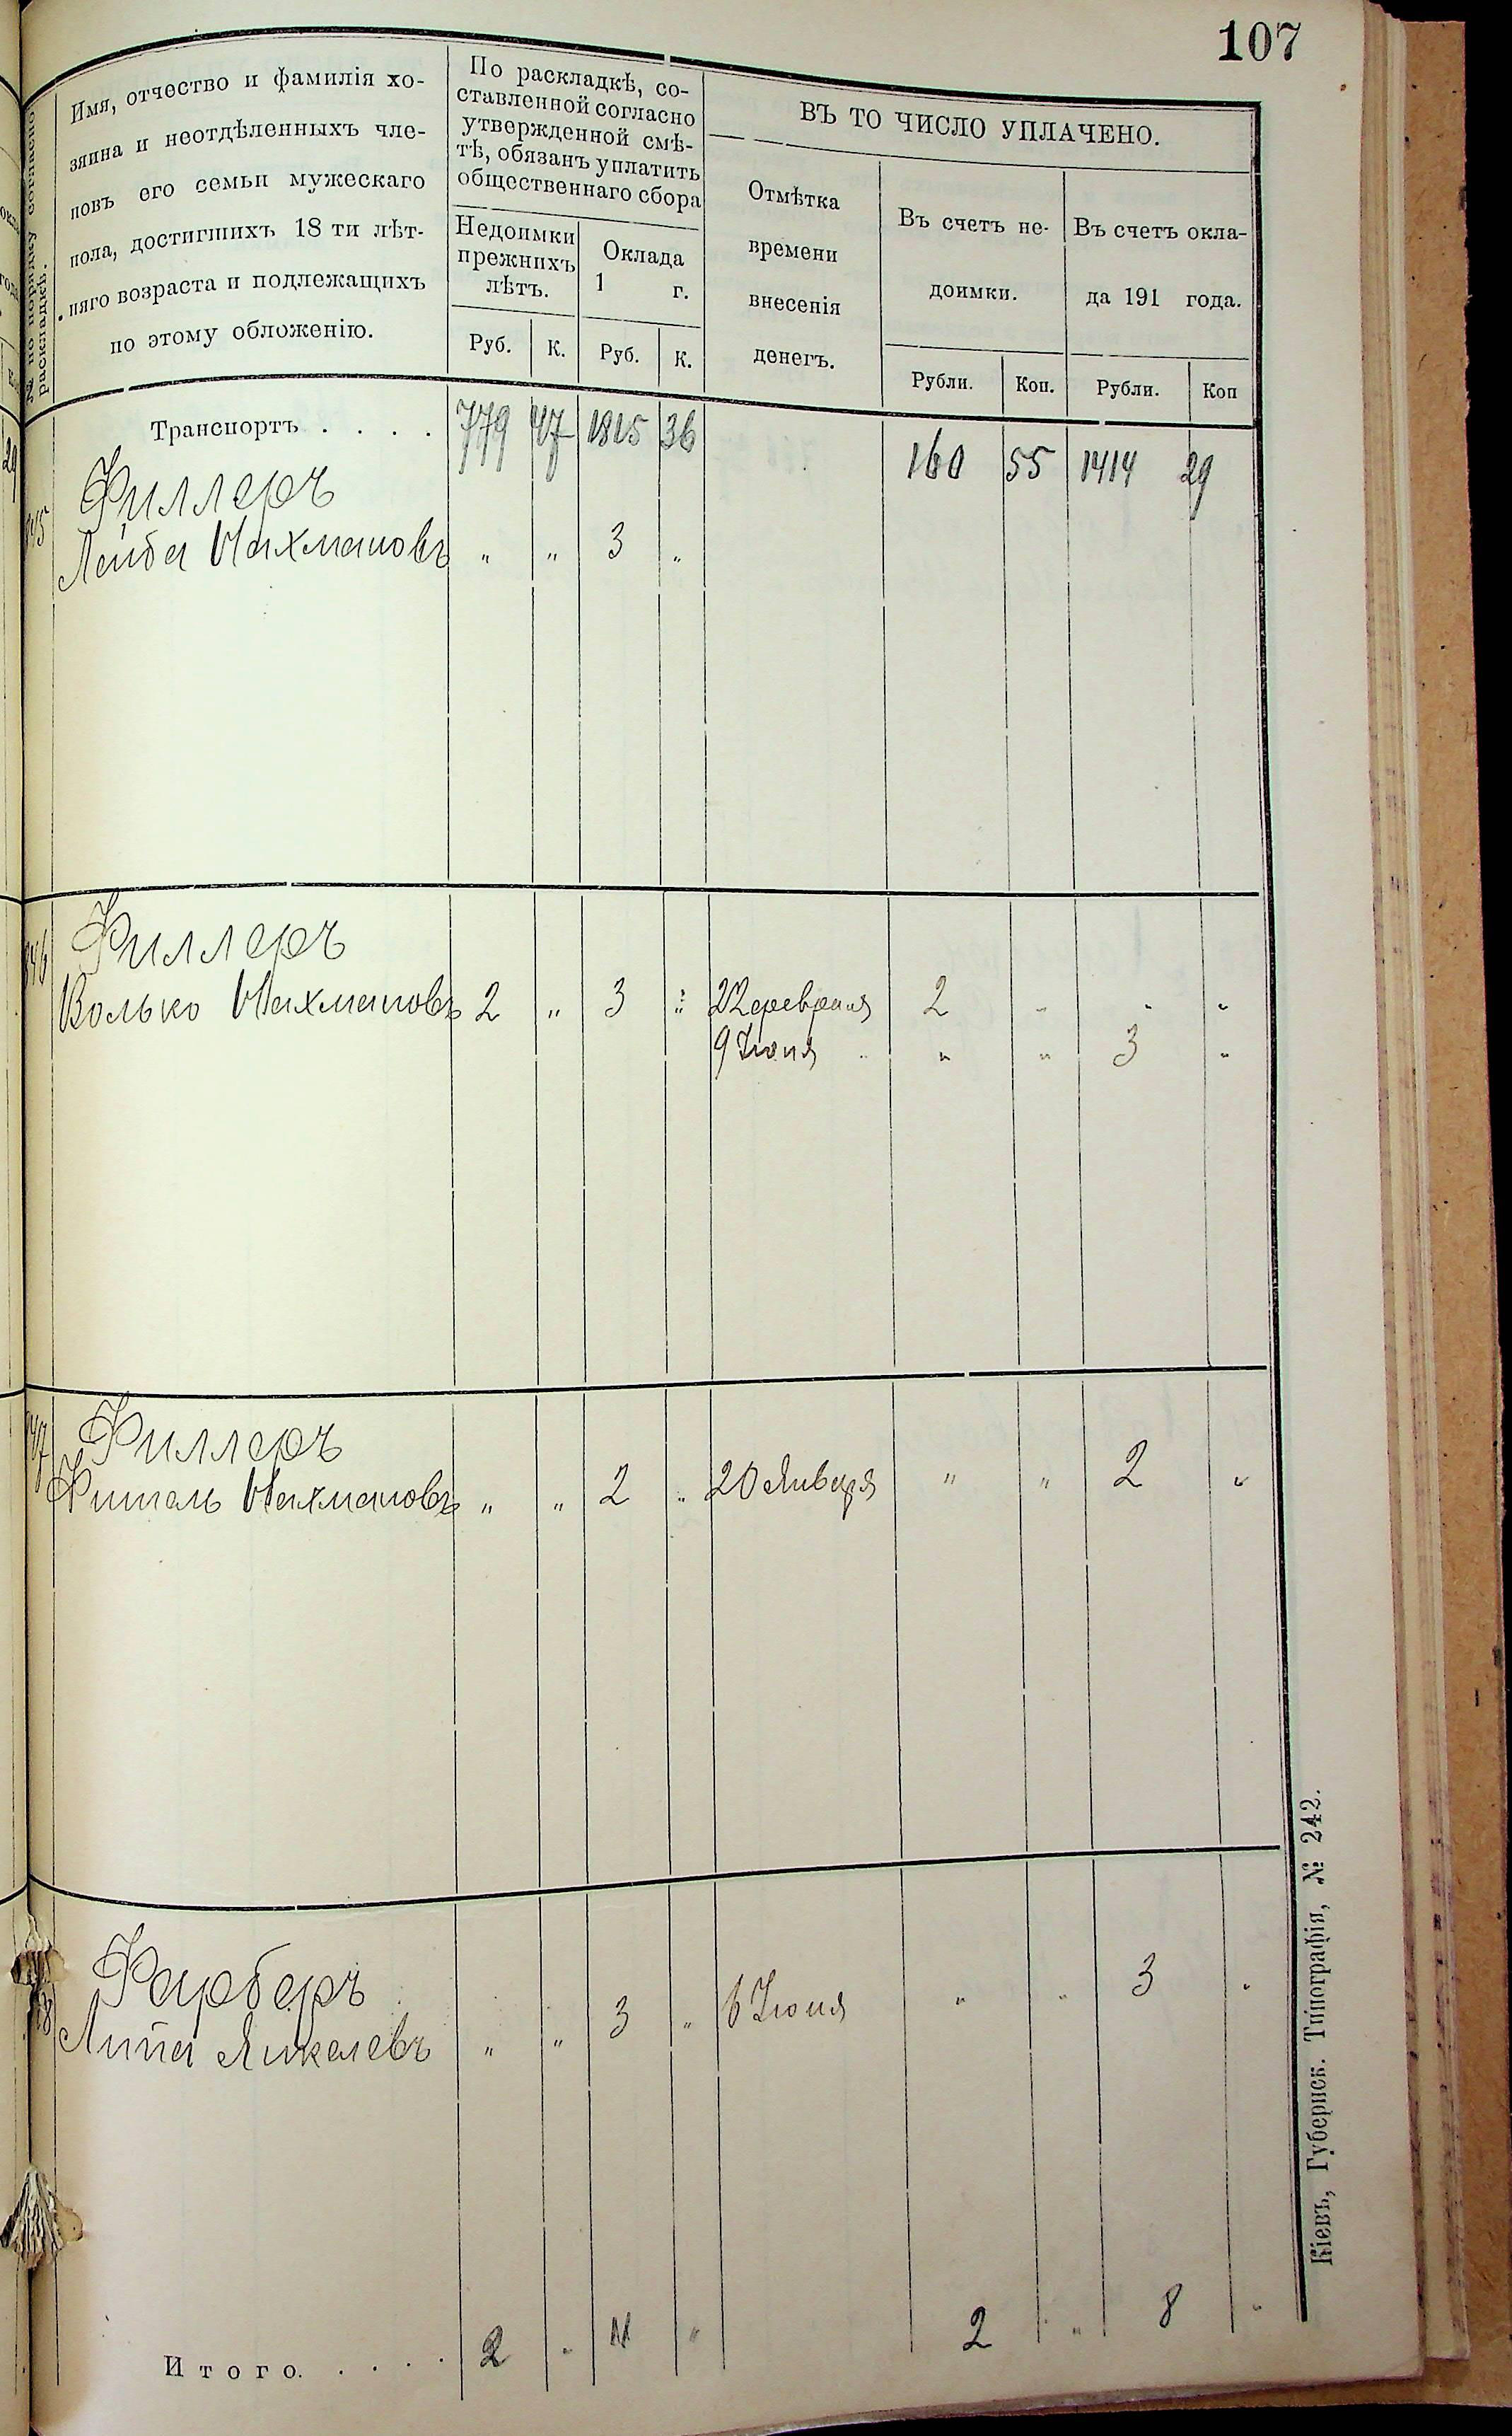 107
№ по порядку согласно
раскладкѣ.
Имя, отчество и фамилія хо-
зяина и неотдѣленныхъ чле-
новъ его семьи мужескаго
пола, достигшихъ 18 ти лѣт-
няго возраста и подлежащихъ
по этому обложенію.
По раскладкѣ, со-
ставленной согласно
утвержденной смѣ-
тѣ, обязанъ уплатить
общественнаго сбора
Недоимки
прежнихъ
лѣтъ.
Оклада
1 г.
Руб. К. Руб. К.
ВЪ ТО ЧИСЛО УПЛАЧЕНО.
Отмѣтка
времени
внесенія
денегъ.
Въ счетъ не-
доимки.
Въ счетъ окла-
да 191 года.
Рубли. Коп. Рубли. Коп
Транспортъ . . . . 779 47 1815 36 160 55 1414 29
Филлеръ
Лейба Нахмановъ „ „ 3 „
Филлеръ
Волько Нахмановъ 2 „ 3 „ 22 февраля 2 „ „ „
9 Іюня „ „ 3 „
Филлеръ
Фишель Нахмановъ „ „ 2 „ 20 Января „ „ 2 „
Фарберъ
Липа Янкелевъ „ „ 3 „ 6 Іюня „ „ 3 „
Итого. . . . . 2 „ 11 „ 2 „ 8 „
Кіевъ, Губернск. Типографія, № 242.